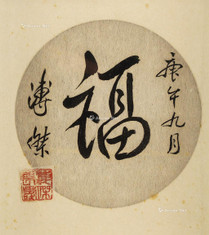 庚午九月
福
溥傑